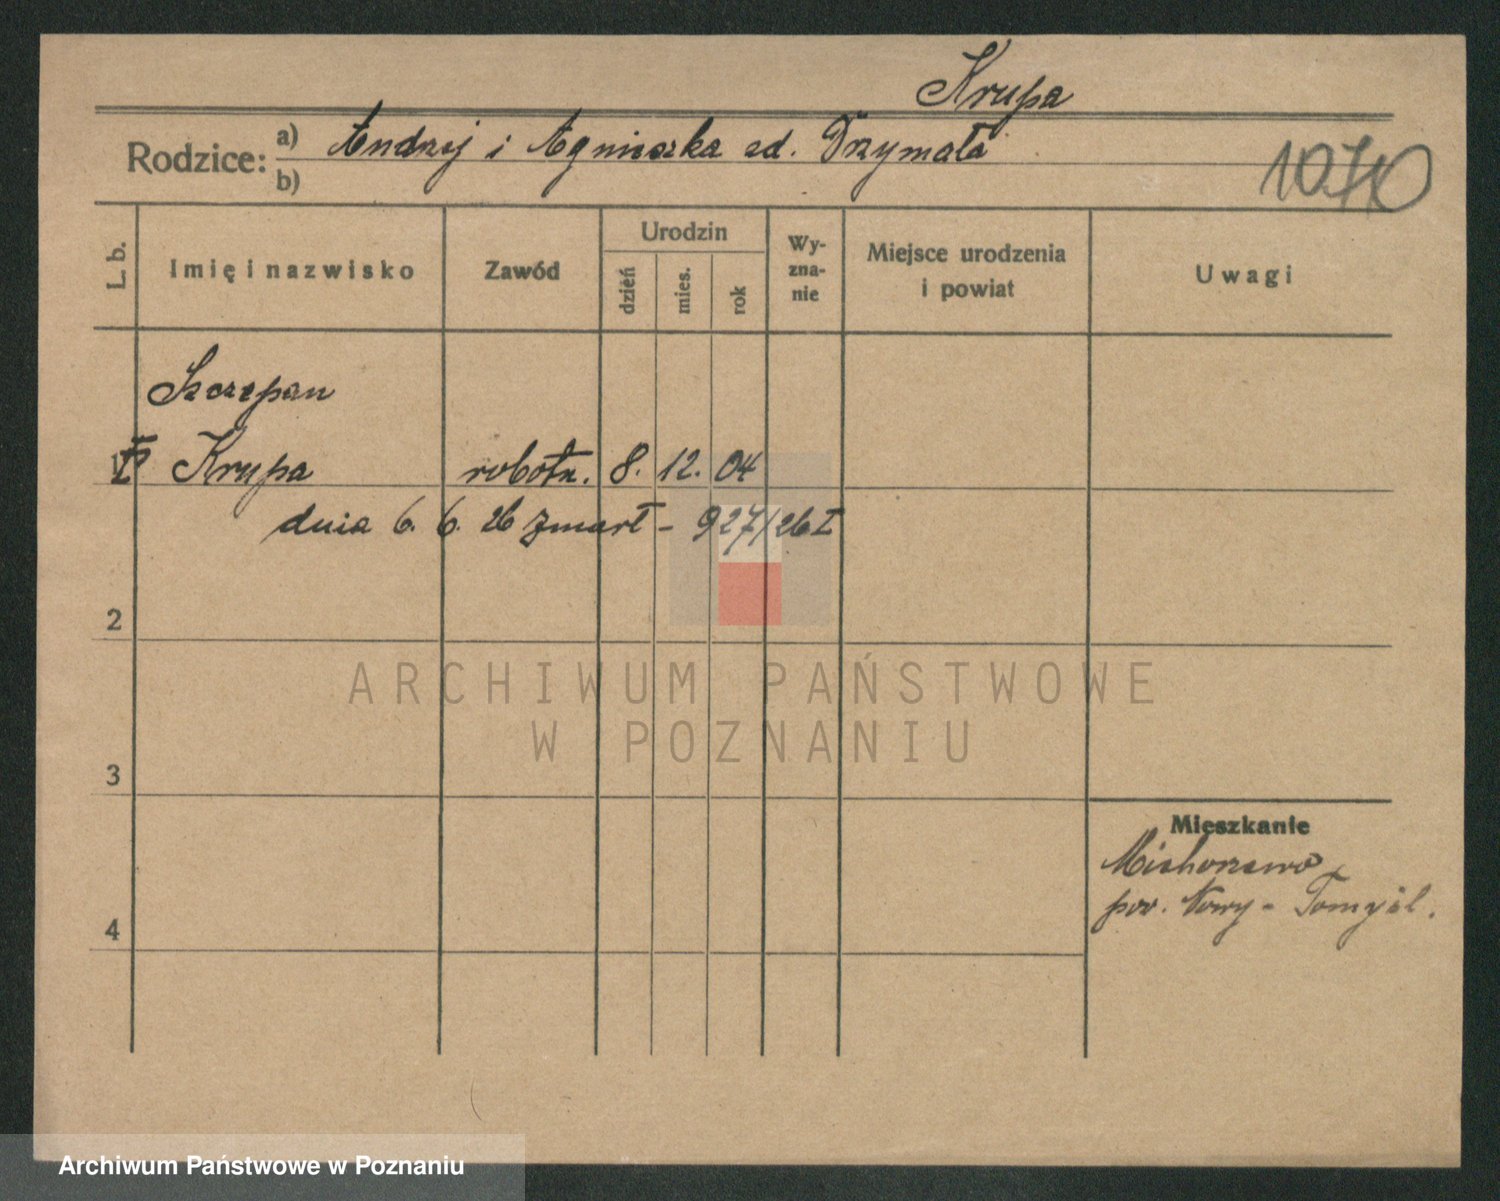 Krupa
Rodzice: a) Andrzej i Agnieszka zd. Drzymała
b)
1070
L. b.
Imię i nazwisko
Zawód
Urodzin
dzień
mies.
rok
Wy-
zna-
nie
Miejsce urodzenia
i powiat
Uwagi
Szczepan
Krupa robotn. 8. 12. 04
dnia 6. 6. 26 zmarł - 927/26 I
2
3
4
Mieszkanie
Michorzewo
pow. Nowy - Tomyśl.
ARCHIWUM PAŃSTWOWE
W POZNANIU
Archiwum Państwowe w Poznaniu